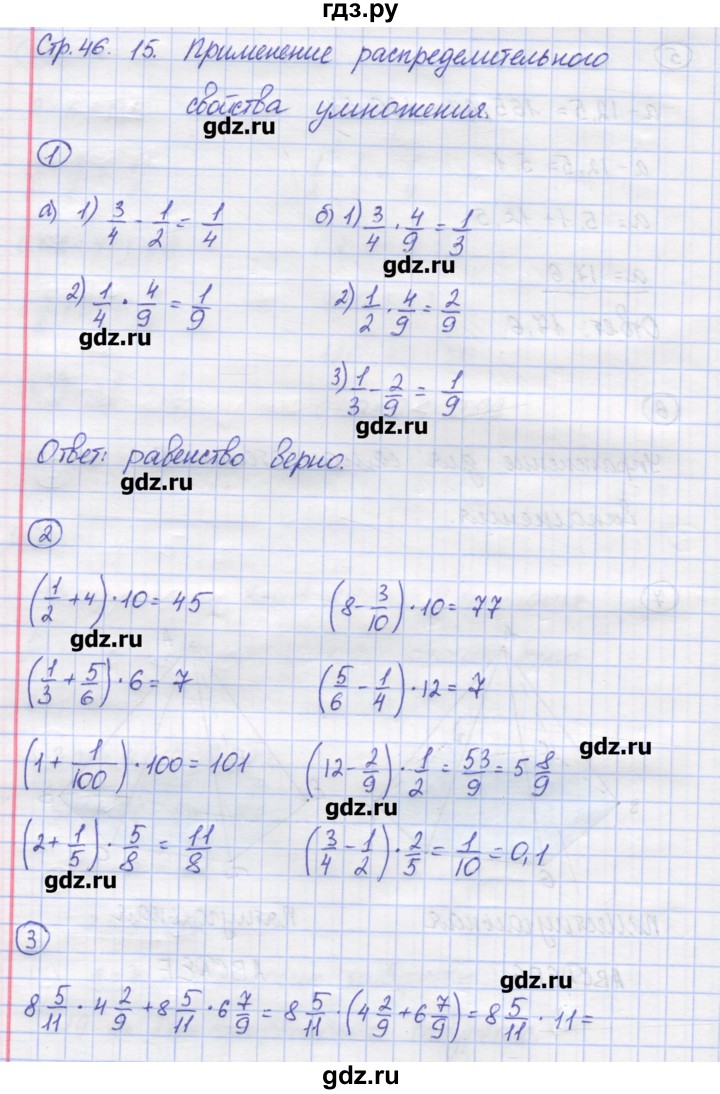 гдз.ру
Стр. 46. 15. Применение распределительного
свойства умножения.
gdz.ru
1
а) 1) 3/4 - 1/2 = 1/4 б) 1) 3/4 · 4/9 = 1/3
gdz.ru
2) 1/4 · 4/9 = 1/9 2) 1/2 · 4/9 = 2/9
gdz.ru
3) 1/3 - 2/9 = 1/9
gdz.ru
Ответ: равенство верно.
gdz.ru
2
(1/2 + 4) · 10 = 45 (8 - 3/10) · 10 = 77
gdz.ru
(1/3 + 5/6) · 6 = 7 (5/6 - 1/4) · 12 = 7
gdz.ru
(1 + 1/100) · 100 = 101 (12 - 2/9) · 1/2 = 53/9 = 5 8/9
gdz.ru
(2 + 1/5) · 5/8 = 11/8 (3/4 - 1/2) · 2/5 = 1/10 = 0,1
gdz.ru
3
gdz.ru
8 5/11 · 4 2/9 + 8 5/11 · 6 7/9 = 8 5/11 · (4 2/9 + 6 7/9) = 8 5/11 · 11 =
gdz.ru